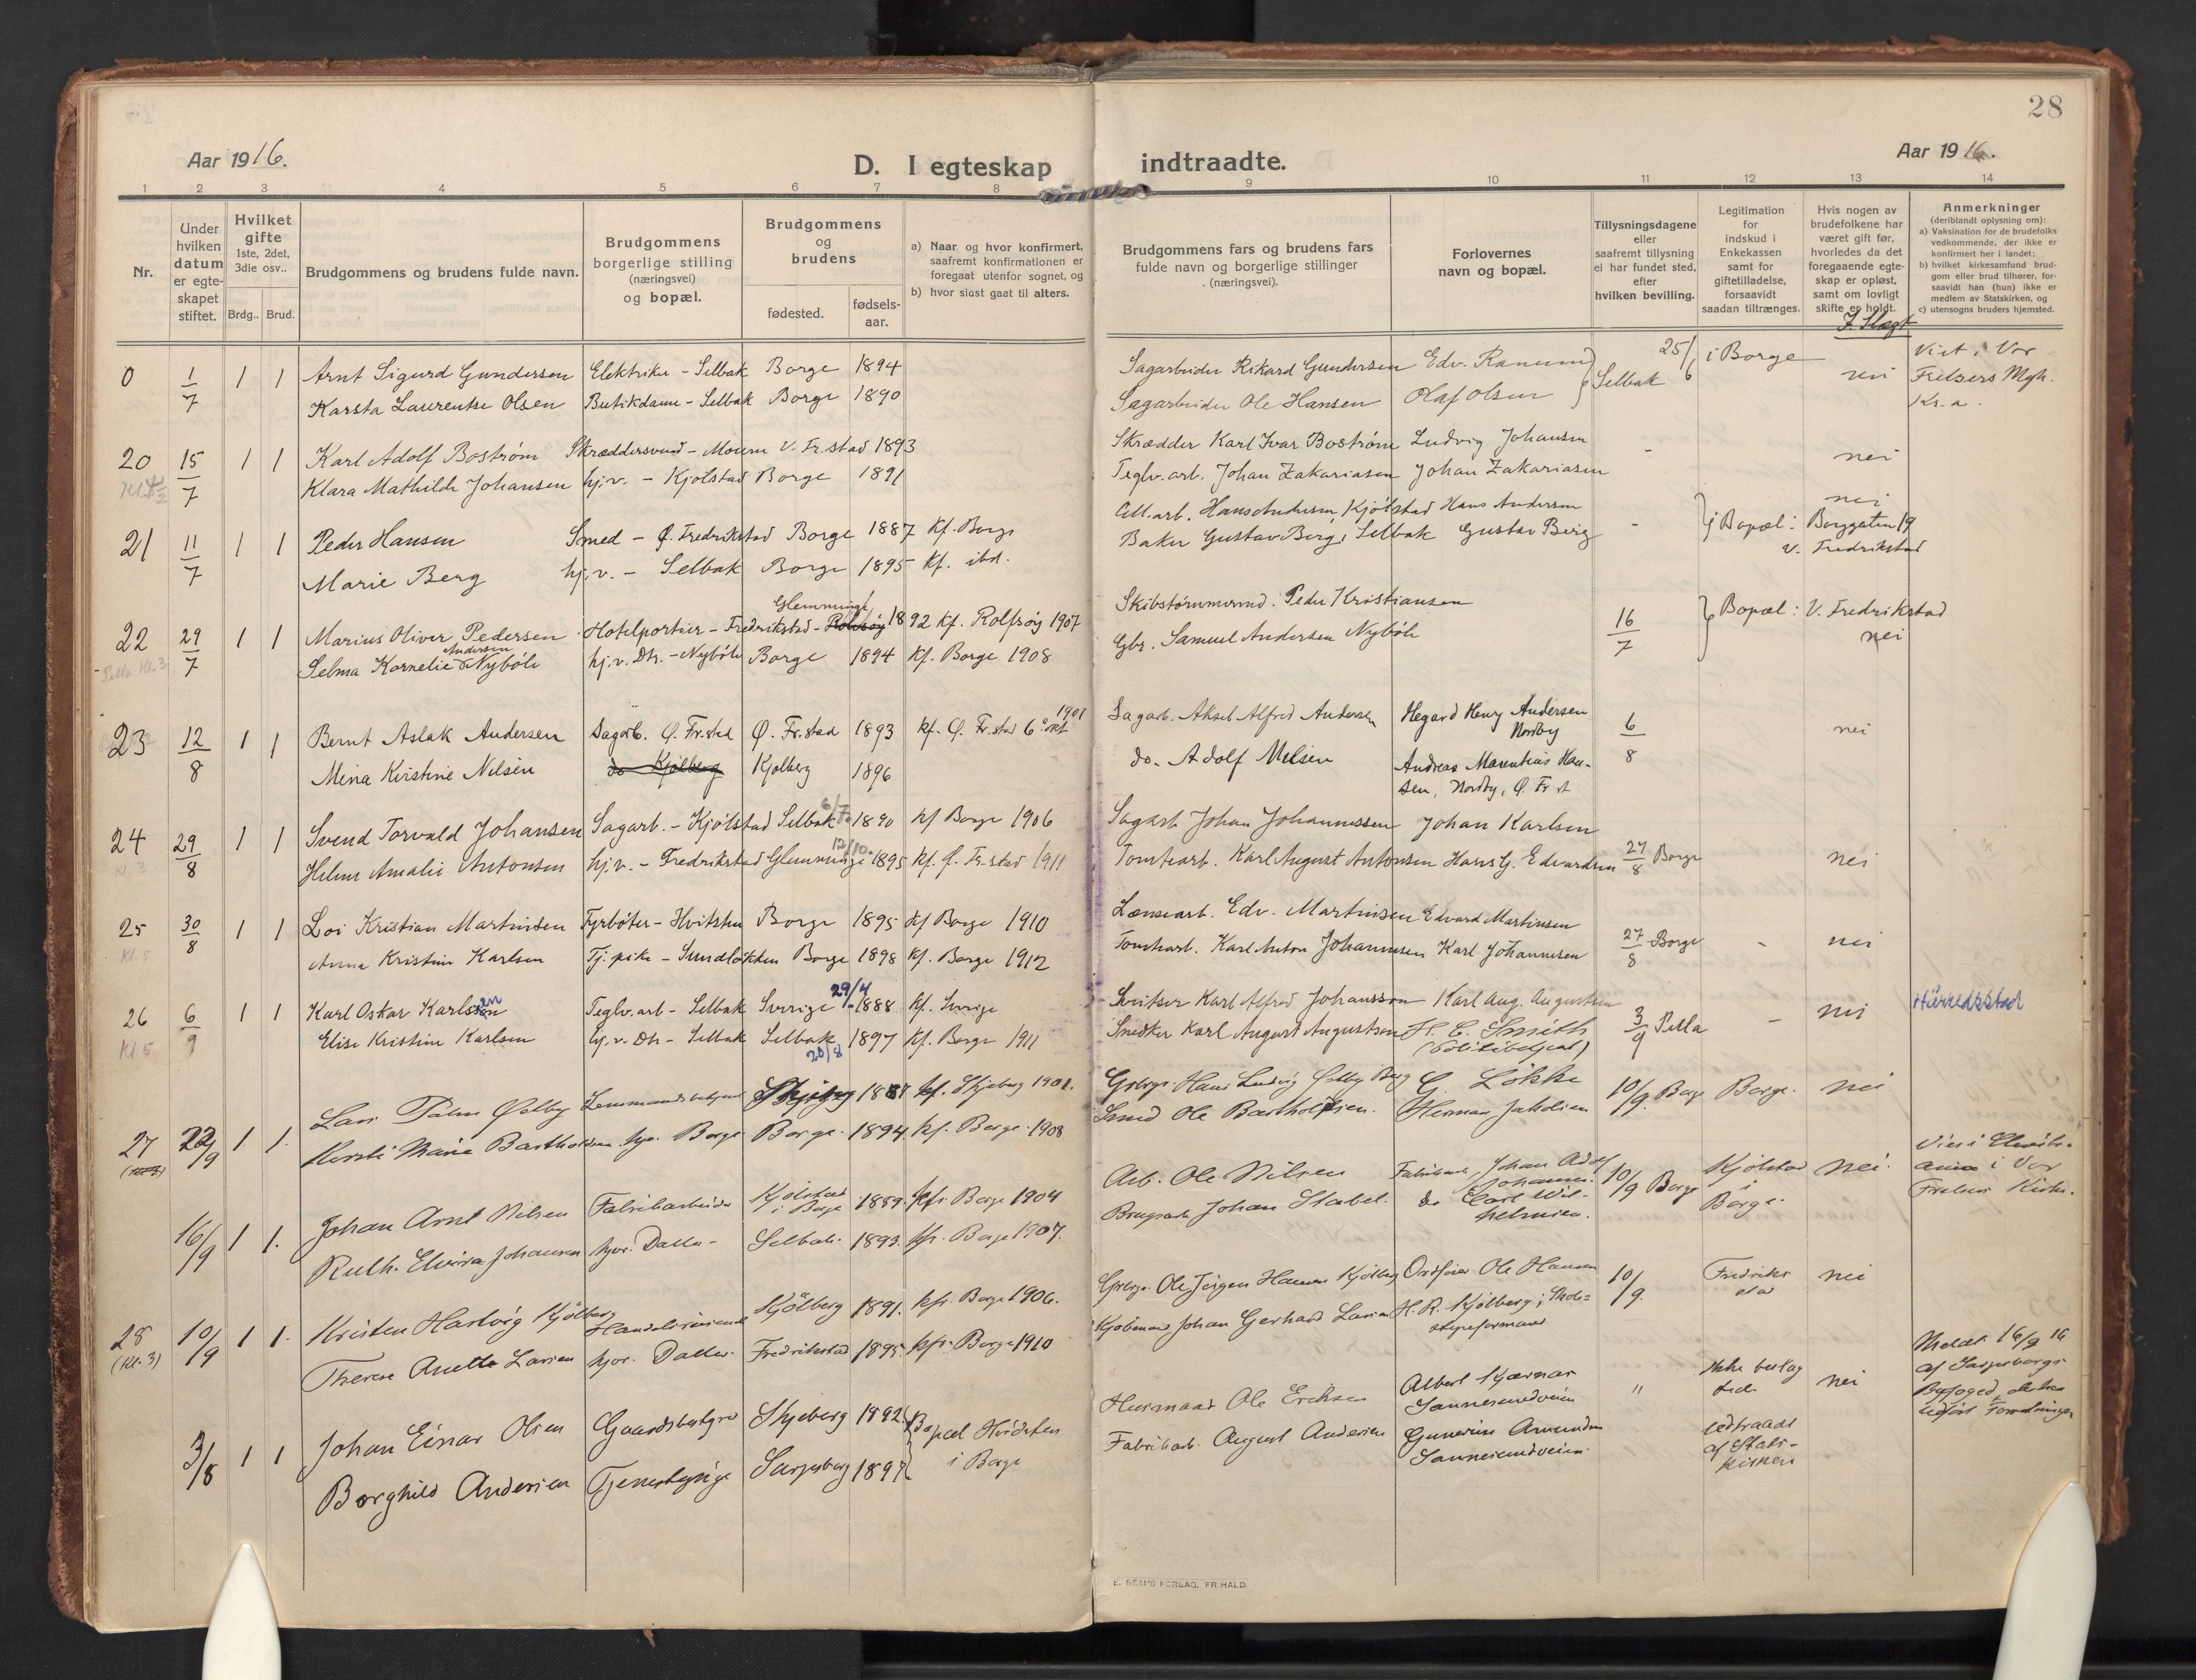 28
Aar 1916.
D. I egteskap indtraadte.
Aar 1916.
1 2 3 4 5 6 7 8 9 10 11 12 13 14
Nr.
Under hvilken datum er egte-skapet stiftet.
Hvilket gifte 1ste, 2det, 3die osv..
Brdg.. Brud.
Brudgommens og brudens fulde navn.
Brudgommens borgerlige stilling (næringsvei) og bopæl.
Brudgommens og brudens
fødested. fødsels-aar.
a) Naar og hvor konfirmert, saafremt konfirmationen er foregaat utenfor sognet, og
b) hvor sidst gaat til alters.
Brudgommens fars og brudens fars fulde navn og borgerlige stillinger (næringsvei).
Forlovernes navn og bopæl.
Tillysningsdagene eller saafremt tillysning ei har fundet sted, efter hvilken bevilling.
Legitimation for indskud i Enkekassen samt for giftetilladelse, forsaavidt saadan tiltrænges.
Hvis nogen av brudefolkene har været gift før, hvorledes da det foregaaende egte-skap er opløst, samt om lovligt skifte er holdt.
Anmerkninger (deriblandt oplysning om):
a) Vaksination for de brudefolks vedkommende, der ikke er konfirmert her i landet;
b) hvilket kirkesamfund brud-gom eller brud tilhører, for-saavidt han (hun) ikke er medlem av Statskirken, og
c) utensogns bruders hjemsted.
0 1/7 1 1 Arnt Sigurd Gundersen Elektriker - Selbak Borge 1894 Sagarbeider Rikard Gundersen Edv. Ranum Selbak 25/6 i Borge nei Viet i Vor
Karsta Laurentse Olsen Butikdame - Selbak Borge 1890 Sagarbeider Ole Hansen Olaf Olsen Frelsers Mgh.
Kr.a.
20 15/7 1 1 Karl Adolf Bostrøm Skræddersvend - Moum V. Fr.stad 1893 Skrædder Karl Ivar Bostrøm Ludvig Johansen - nei
Klara Mathilde Johansen hj.v. - Kjølstad Borge 1891 Teglv.arb. Johan Zakariasen Johan Zakariasen
21 11/7 1 1 Peder Hansen Smed - Ø. Fredrikstad Borge 1887 Kf. Borge Hans Andersen, Kjølstad Hans Andersen - Bopæl: Borggaten 19 nei
Marie Berg hj.v. - Selbak Borge 1895 Kf. ibd. Baker Gustav Berg, Selbak Gustav Berg V. Fredrikstad
22 29/7 1 1 Marius Oliver Pedersen Hotelportier - Fredrikstad - Glemminge 1892 Kf. Rolfsøy 1907 Peder Kristiansen 16/7 Bopæl: V. Fredrikstad
Selma Kornelie Andersen Nybøle hj.v. Dtr. - Nybøle Borge 1894 Kf. Borge 1908 Gbr. Samuel Andersen Nybøle nei
23 12/8 1 1 Bernt Aslak Andersen Sagarb. Ø. Fr.stad Ø. Fr.stad 1893 Kf. Ø. Fr.stad 6 okt Sagarb. Aksel Alfred Andersen Hegard Henry Andersen Nordby 6/8 nei
Mina Kristine Nilsen do Kjølberg Kjølberg 1896 do. Adolf Nielsen Andreas Marentius Han-
sen, Nordby, Ø. Fr st
24 29/8 1 1 Svend Torvald Johansen Sagarb. - Kjølstad Selbak 6/7 1890 kf Borge 1906 Sagarb. Johan Johannessen Johan Karlsen
Kl. 3 Amalie Antonsen hj.v. - Fredrikstad Glemminge 12/10 1895 Kf. Ø. Fr.stad 1911 Tomtearb. Karl August Antonsen Hans G. Edvardsen 27/8 Borge nei
25 30/8 1 1 Kristian Martinsen Fyrbøter - Hvitsten Borge 1895 Kf Borge 1910 Edv. Martinsen Edvard Martinsen
Kl. 5 Anna Kristine Karlsen Tj. pike - Sundløkken Borge 1898 Kf. Borge 1912 Tomtearb. Karl Anton Johannesen Karl Johannesen 27/8 Borge - nei
26 6/9 1 1 Karl Oskar Karlsen Teglv.arb - Selbak Sverige 29/4 1888 Kf. Sverige Karl Alfred Johansson Karl Aug. Augustsen 3/9 - nei
Kl 5 Elise Kristine Karlsen hj.v. Dtr - Selbak Selbak 20/8 1897 Kf. Borge 1911 Snedker Karl August Augustson H. E. Smith
27 22/9 1 1. Lars Palm Østby Lensmandsbetjent Skjeberg kf. Skjeberg 1901. Hans Ludvig Østby G. Løkke 10/9. Borge Borge. nei
Marie hjv. Borge Borge. 1894 kf. Borge 1908 Smed Ole Bartholsen. Herman Jakobsen
16/9 1 1. Johan Arnt Nilsen Fabrikarbeider Kjølstad i Borge 1889. kfr. Borge 1904 Arb. Ole Nilsen Johan Adolf 10/9 Borge Kjølstad i Borge. nei.
Ruth Elvira Johansen hjv. Datter - Selbak. 1893. kfr. Borge 1907. Johan Stabel. do Carl Wil-
helmsen.
Frelsers Kirke.
28 10/9 1 1. Kristen Hartvig Kjølberg Handelsreisende Kjølberg 1891. kfr. Borge 1906. Ole Jørgen Hansen Kjølberg Ordfører Ole Hansen 10/9. Fredrikstad nei
(Kl. 3) Therese Anette Larsen hjv. Datter. Fredrikstad 1895. kfr. Borge 1910 Kjøbmand Johan Gerhard Larsen H. R. Kjølberg, Skole-
styreformand
3/8 1 1 Johan Einar Olsen Gaardsbestyrer Skjeberg 1892 Bopæl Hvidsten Husmand Ole Eriksen Albert Kjærnar " nei Meldt 16/9 16
Sannesundveien af Sarpsborgs
Borghild Andersen Tjenestepige Sarpsborg 1897 i Borge Fabrikarb. August Andersen Sannesundveien. udtraadt
af Stats-
kirken
E. SEM'S FORLAG. FR.HALD.